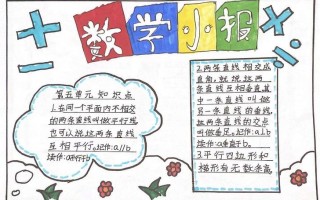 数学小报
第五单元知识点
1.在同一个平面内不相交
的两条直线叫做平行线
也可以说这两条直线
互相平行。记作:a//b
读作:a平行于b
2.两条直线相交成
直角,就说这两
条直线互相垂直,其
中一条直线叫做
另一条直线的垂线,
这两条直线的交点
叫做垂足。记作:a⊥b
读作:a垂直于b。
3.平行四边形和
梯形有无数条高